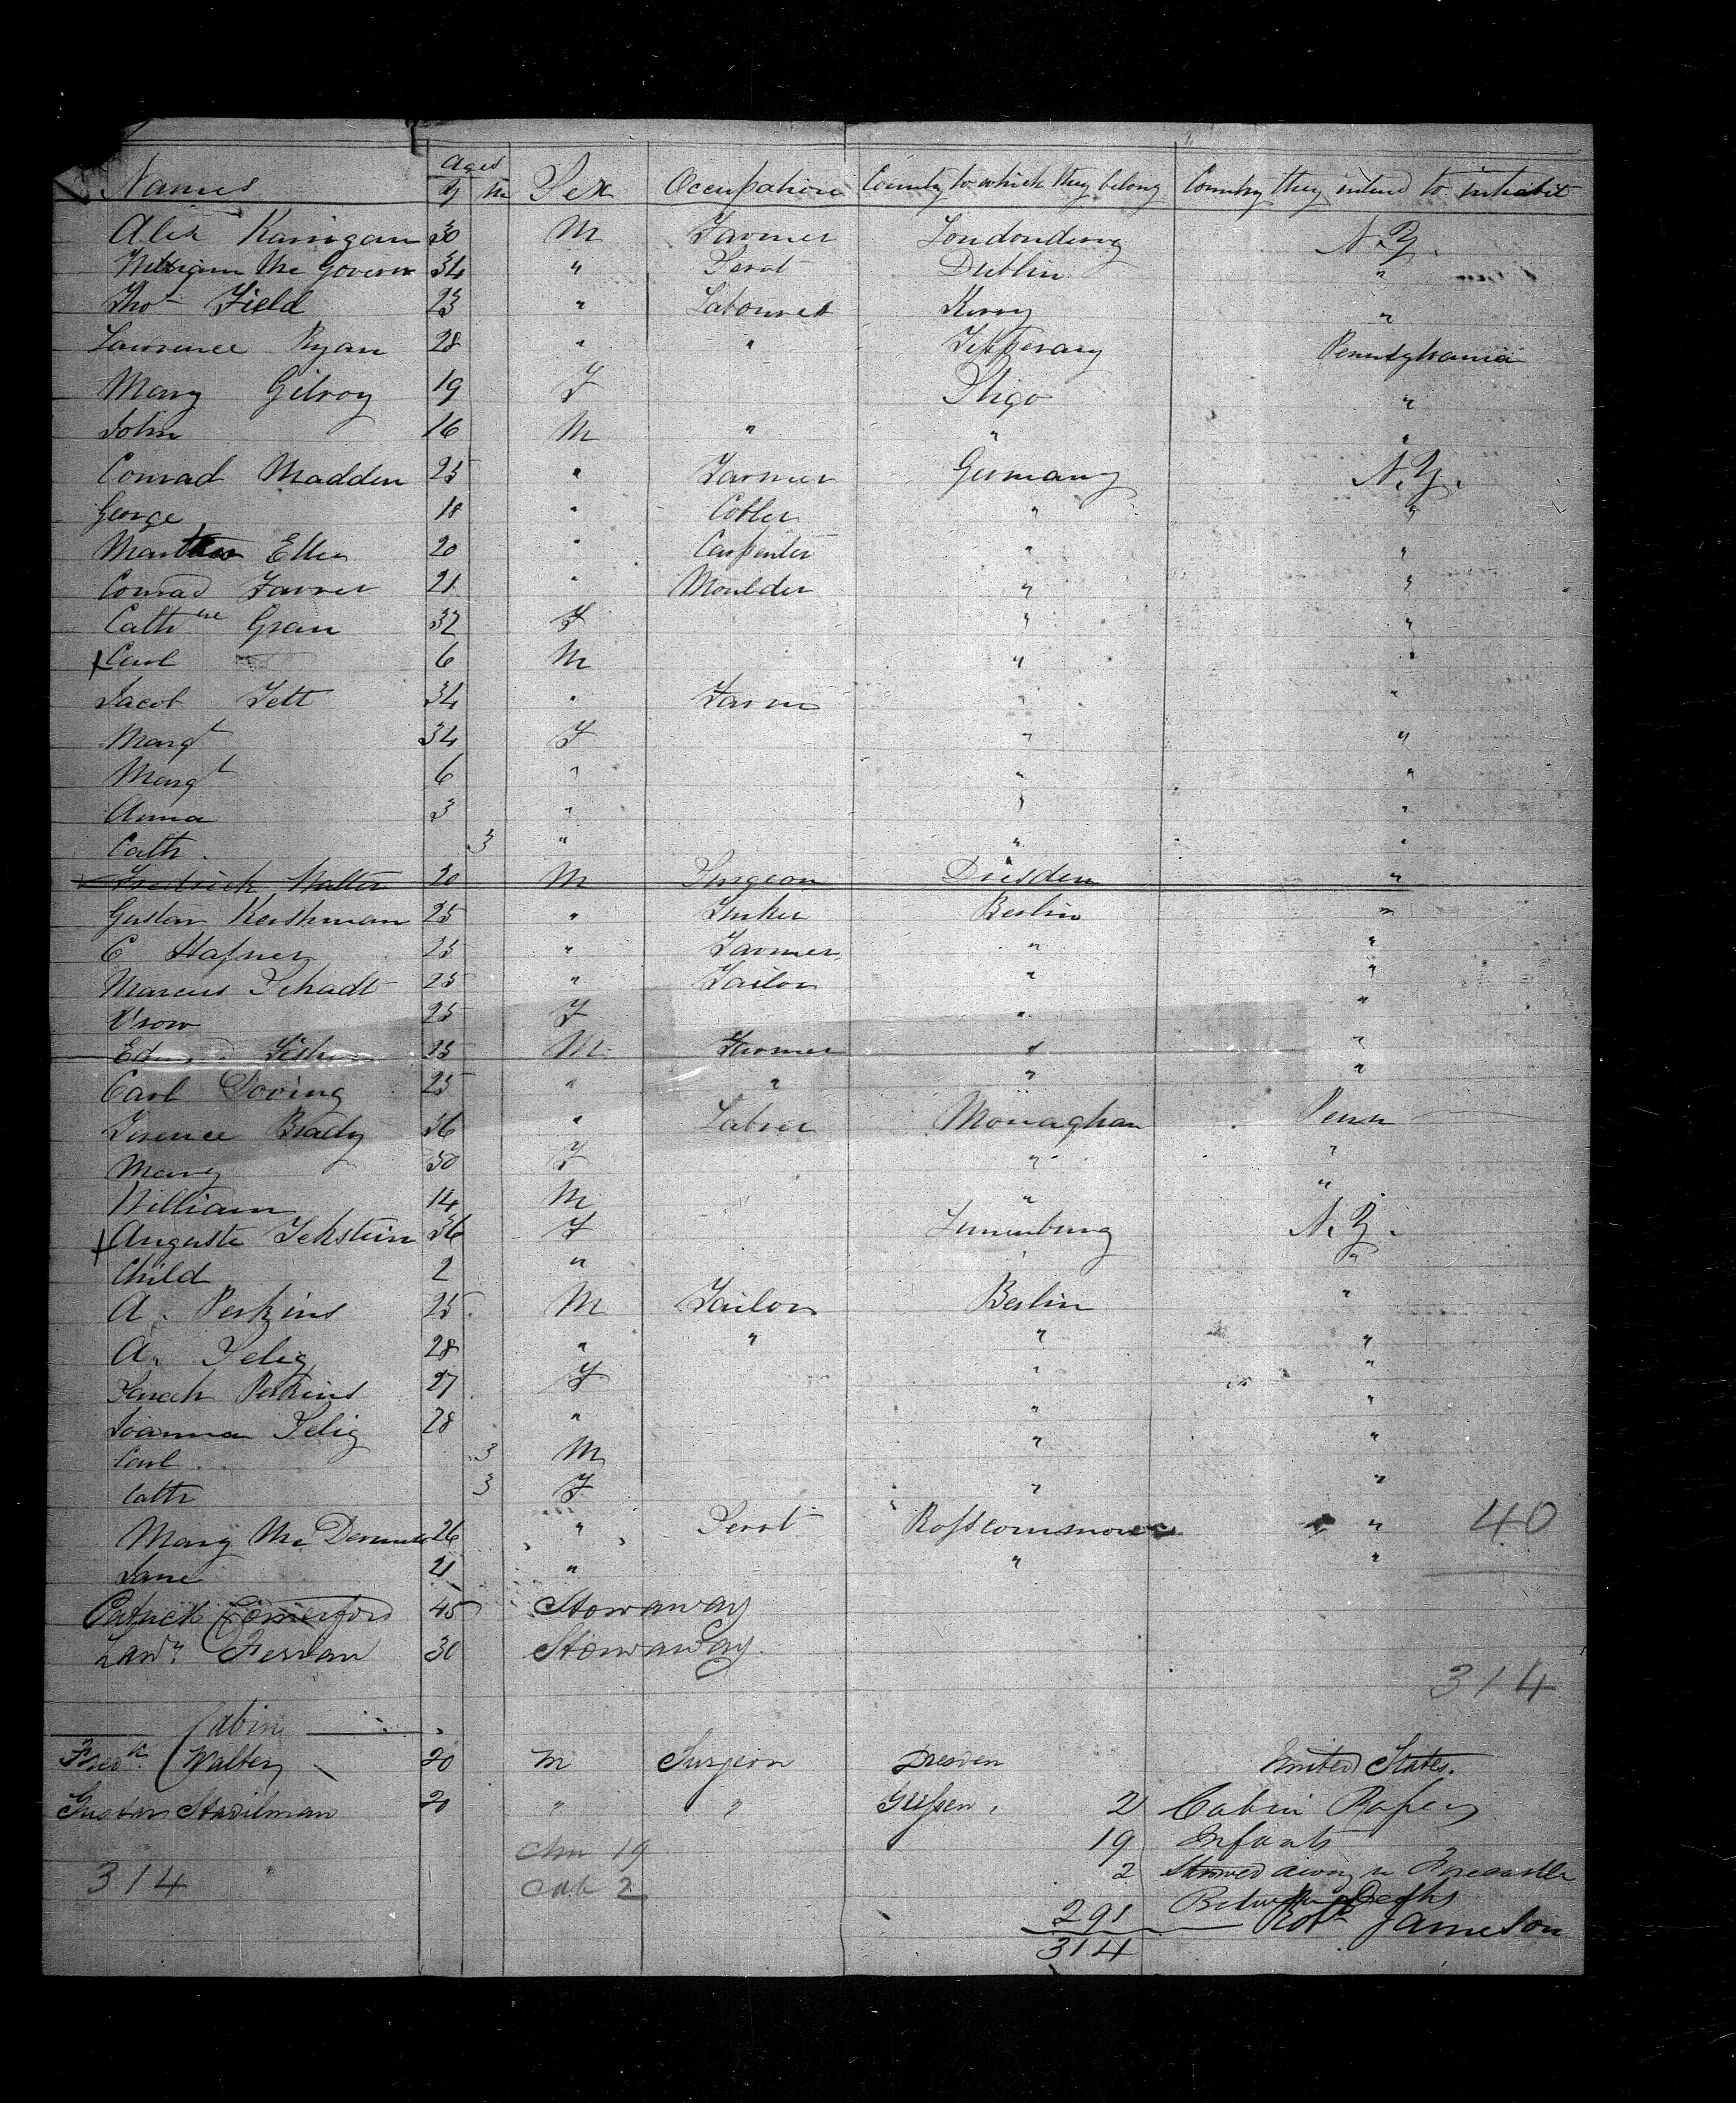 Ages
Names Y M Sex Occupation County to which they belong Country they intend to inhabit
Alex Kanigan 30 M Farmer Londonderry N.Y.
William Mc Govern 34 " Servt Dublin "
Thos Field 23 " Labourer Kerry "
Lawrence Ryan 28 " " Tipperary Pennsylvania
Mary Gilroy 19 F Sligo "
John 16 M " " "
Conrad Madden 25 " Farmer Germany N.Y.
George 18 " Cobler " "
Ellen 20 " Carpenter " "
Conrad Farrer 21 " Moulder " "
Cathne Gran 32 F " "
x Carl 6 M " "
Jacob Fett 34 " Farm " "
Margt 34 F " "
Margt 6 " " "
Anna 3 " " "
Cath. 3 " " "
Fredrick Walter 20 M Surgeon Dresden "
Gustav Kershman 25 " Berlin "
C Hafner 25 " Farmer " "
Marcus Schadt 25 " Tailor " "
Vrow 25 F " "
Fisher 25 M Farmer " "
Carl Doring 25 " " " "
Terence Brady 36 " Labrer Monaghan Penn
Mary 30 F " "
William 14 M " "
x Auguste Tekstein 36 F Lunenburg N.Y.
Child 2 " " "
A. Perkins 25 M Tailor Berlin "
A. Selig 28 " " " "
Sarah Perkins 27 F " "
Joanna Selig 28 " " "
Carl 3 M " "
Cath 3 F " "
Mary Mc Dermott 26 " Servt Rosscommon " 40
Jane 21 " " "
Patrick Comerford 45 Stowaway
Lawr Fersian 30 Stowaway.
314
Cabin
Fredk Walter 20 M Surgeon Dresden United States.
Gustav Stadilman 20 " " Giessen. 2 Cabin Passen
Chn 19 19 Infants
314 " Cab 2 2 Stowed away in Forecastle
291 Between Decks
314 Robt Jameson